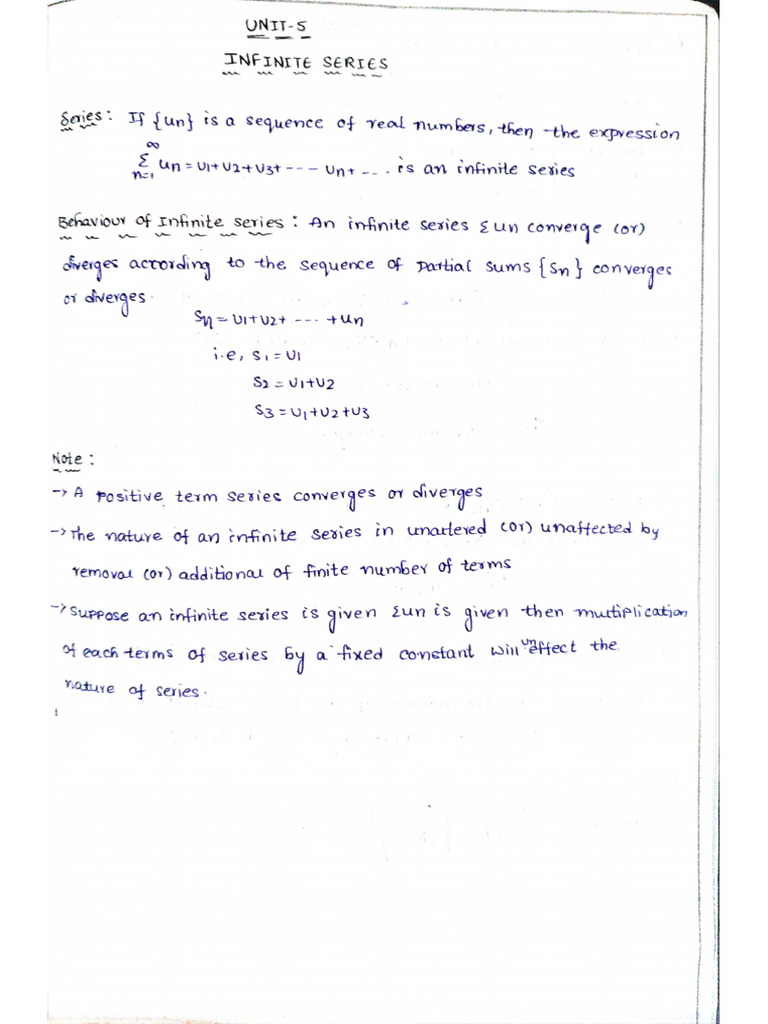 UNIT-5
INFINITE SERIES
Series: If {un} is a sequence of real numbers, then the expression
∞
Σ un = u1+u2+u3+---- un+ --. is an infinite series
n=1
Behaviour of Infinite series: An infinite series Σun converge (or)
diverges according to the sequence of partial sums {Sn} converges
or diverges.
Sn = u1+u2+ ---- +un
i.e, S1 = u1
S2 = u1+u2
S3 = u1+u2+u3
Note:
-> A positive term series converges or diverges
-> The nature of an infinite series in unartered (or) unaffected by
removal (or) additional of finite number of terms
-> Suppose an infinite series is given Σun is given then multiplication
of each terms of series by a fixed constant will uneffect the
nature of series.